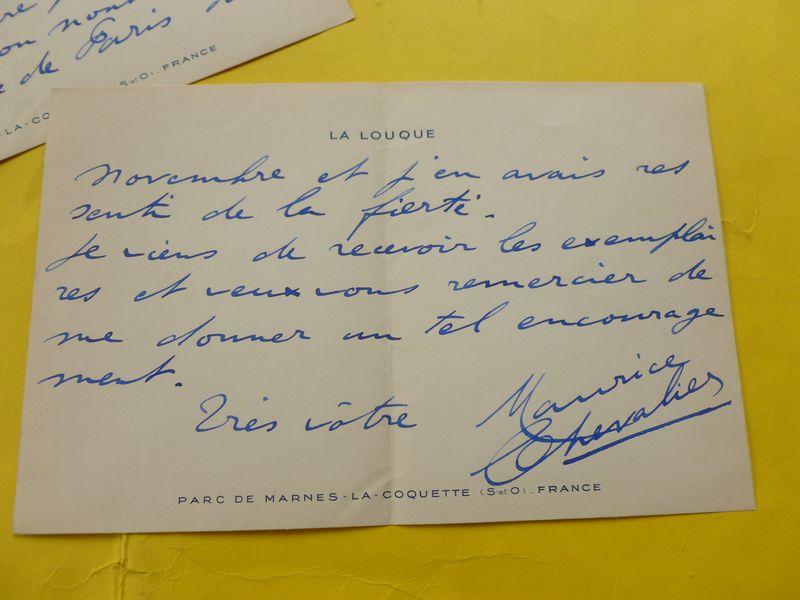 on nous
de Paris
LA-CO (S-et-O)_FRANCE
LA LOUQUE
novembre et j'en avais res
senti de la fierté.
Je viens de recevoir les exemplai
res et veux vous remercier de
me donner un tel encourage
ment.
Très vôtre
Maurice
Chevalier
PARC DE MARNES-LA-COQUETTE (S-et-O)_FRANCE